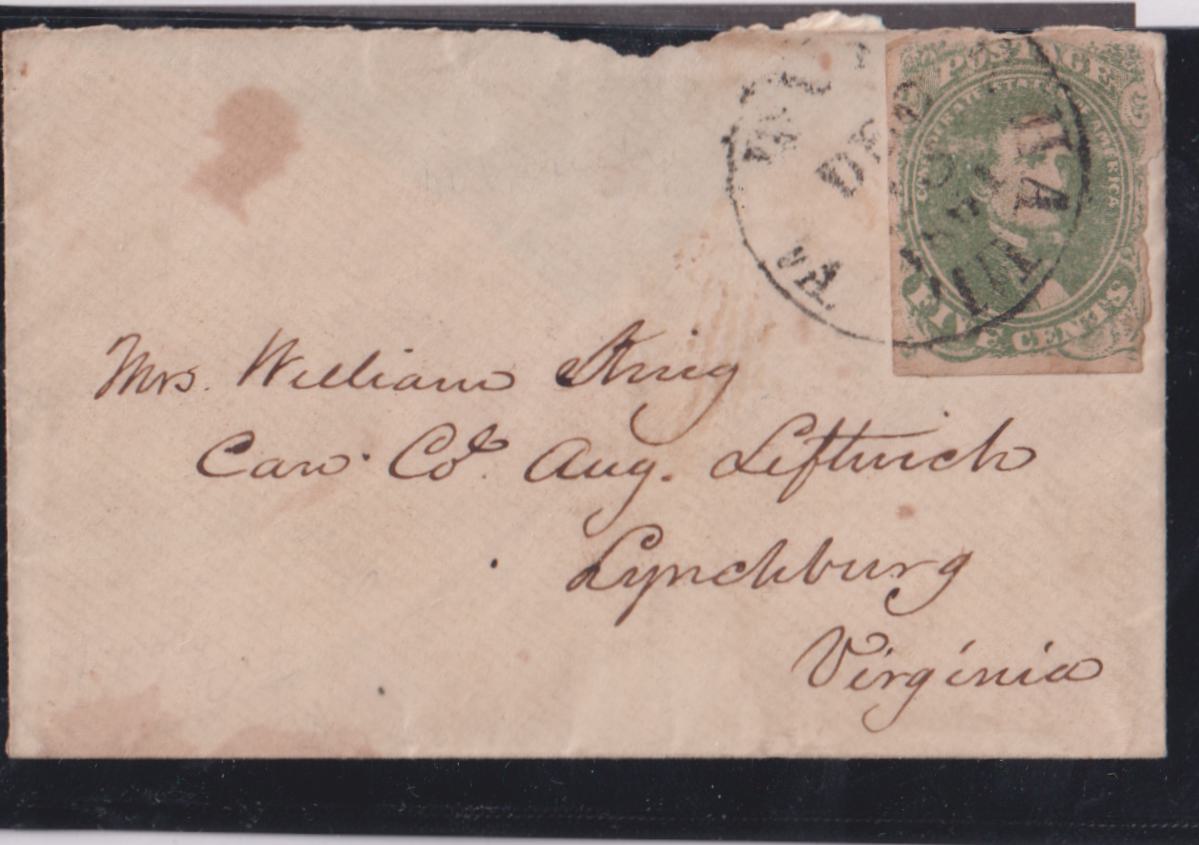 POSTAGE
CONFEDERATE STATES OF AMERICA
FIVE CENTS
DEC
VA
Mrs. William King
Care Col. Aug. Leftwich
Lynchburg
Virginia